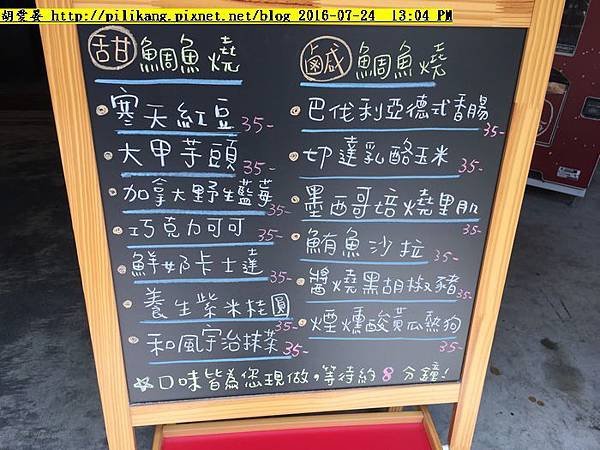 胡愛晏 http://pilikang.pixnet.net/blog 2016-07-24 13:04 PM
甜 鯛魚燒
寒天紅豆 35-
大甲芋頭 35-
加拿大野生藍莓 35-
巧克力可可 35-
鮮奶卡士達 35-
養生紫米桂圓 35-
和風宇治抹茶 35-
鹹 鯛魚燒
巴伐利亞德式香腸 35-
切達乳酪玉米 35-
墨西哥培燒里肌 35-
鮪魚沙拉 35-
醬燒黑胡椒豬 35-
煙燻酸黃瓜熱狗 35-
☆口味皆為您現做,等待約8分鐘!